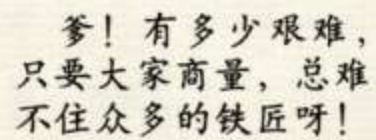 爹！有多少艰难，
只要大家商量，总难
不住众多的铁匠呀！